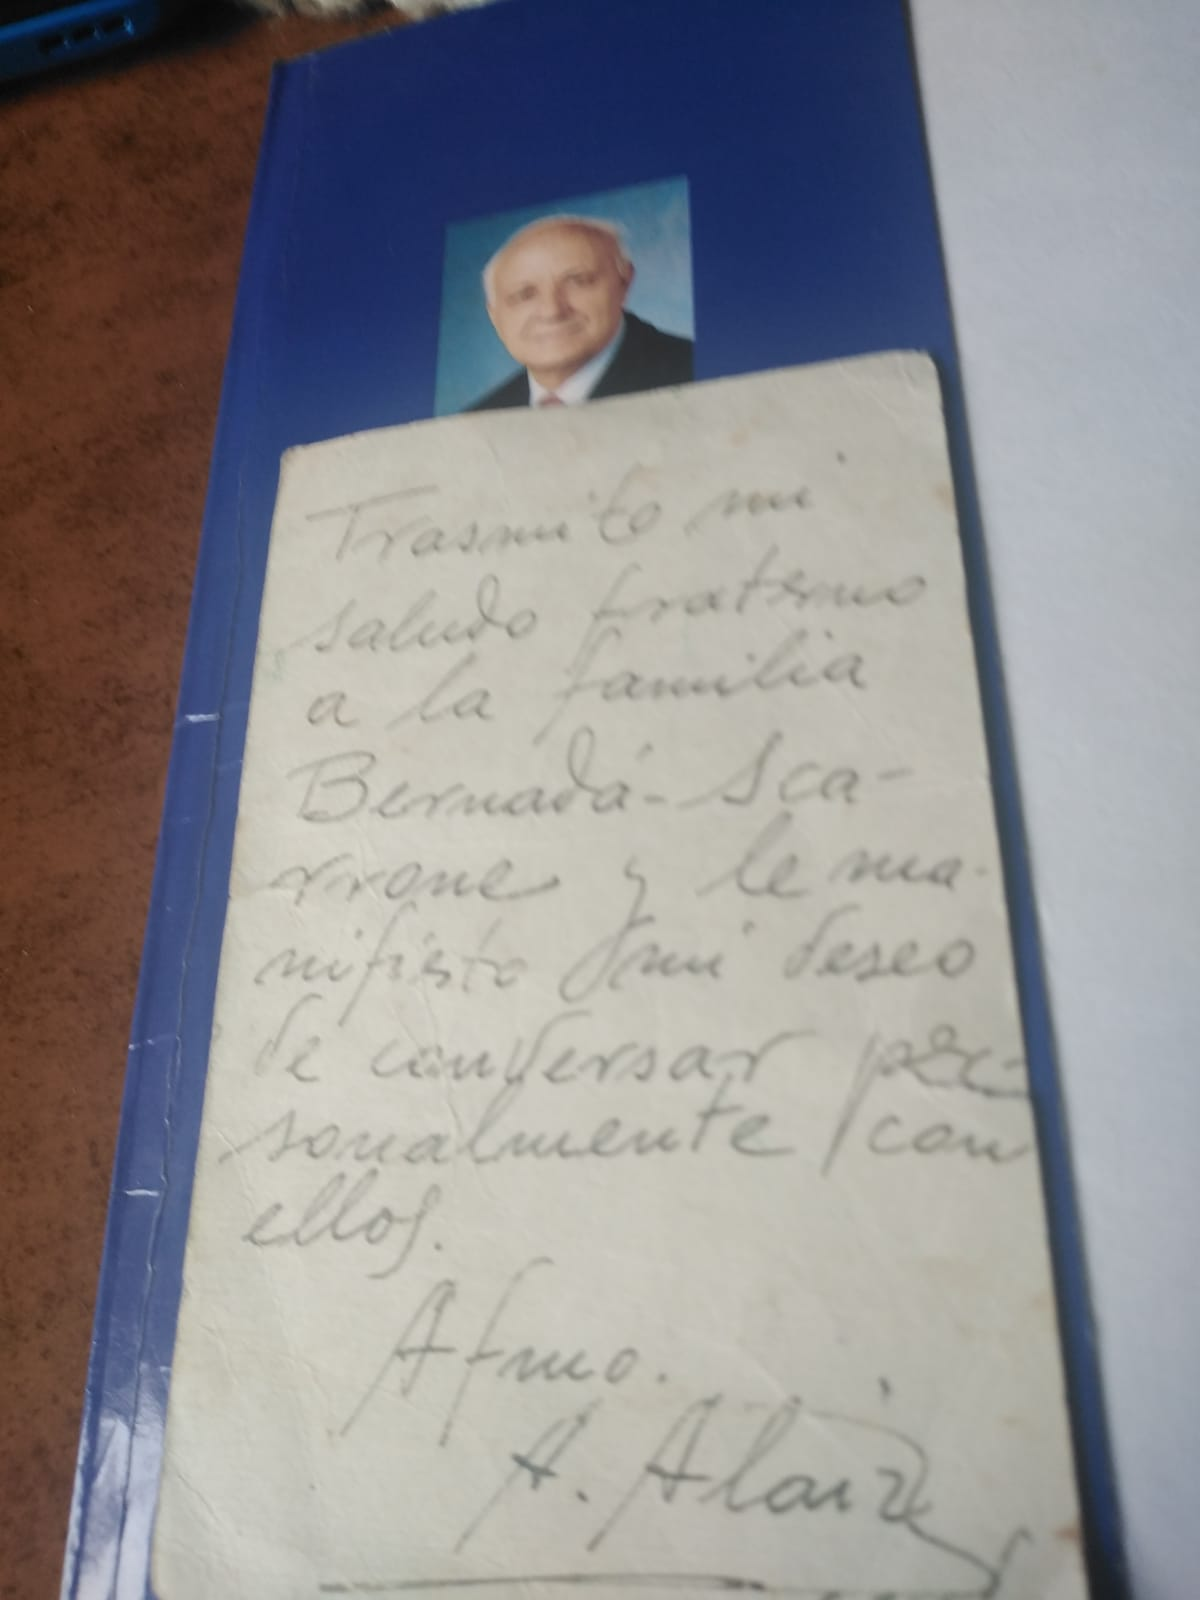 Trasmito mi
saludo fraterno
a la familia
Bernadá - Sca-
rrone y le ma-
nifiesto mi deseo
de conversar per-
sonalmente con
ellos.
Afmo.
A. Alaiz